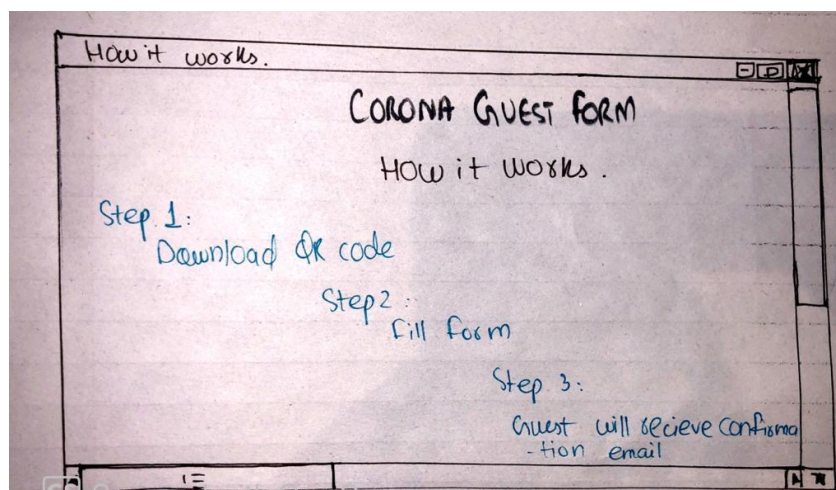 How it works.
CORONA GUEST FORM
How it works.
Step 1:
Download QR code
Step 2:
Fill form
Step 3:
Guest will recieve confirma
-tion email